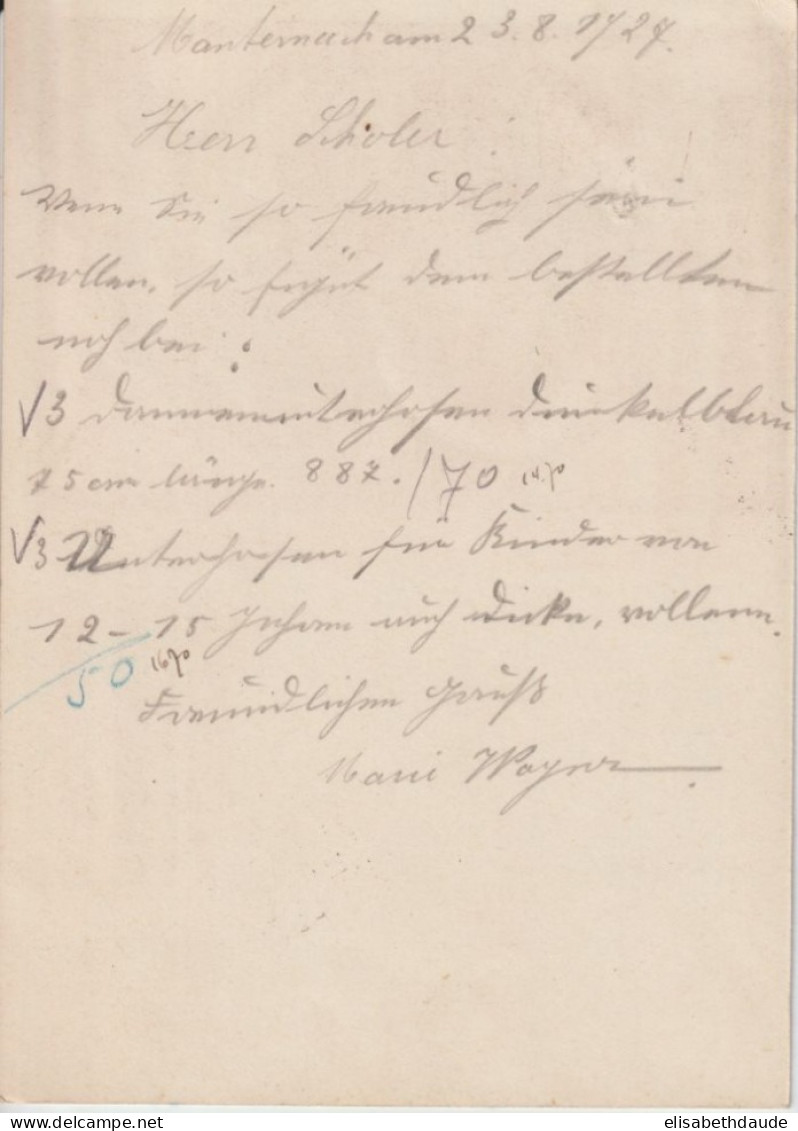 Manternach am 23.8.1927.
Herr Scholer!
Wenn Sie so freundlich sein
wollen, so fügt dem bestelltem
noch bei:
√3 Damenunterhosen dunkelblau
75 cm länge. 887. /70
√3 Unterhosen für Kinder von
12-15 Jahren auch dicke, wollene.
50
Freundlichen Gruß
Marie Wagner
elisabethdaude